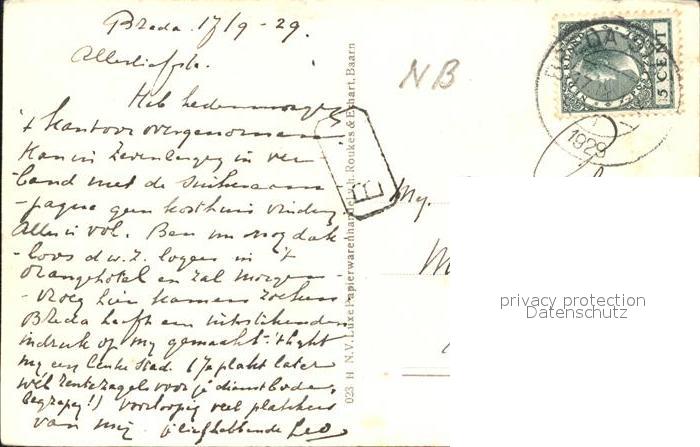 Breda 17/9-29.
Allerliefste.
Heb hedenmorgen
't kantoor overgenomen
Kan in Zevenbergen in ver
band met de suikercam
-pagne geen kosthuis vinden
Alles is vol. Ben nu nog dak
-loos d.w.z. logeer in 't
Oranjehotel en zal morgen-
-vroeg hier kamers zoeken
Breda heeft een uitstekenden
indruk op my gemaakt. 't lijkt
my een leuke stad. (Je plakt later
wél zentezagels voor je dienstboden,
begrepen!!) Voorloopig veel
van mij je liefhebbende Leo
023 H N.V. Luxe Papierwarenhandel v.h. Roukes & Erhart. Baarn
NB
E
NEDERLAND
5 CENT
BREDA
1929
My.
privacy protection
Datenschutz